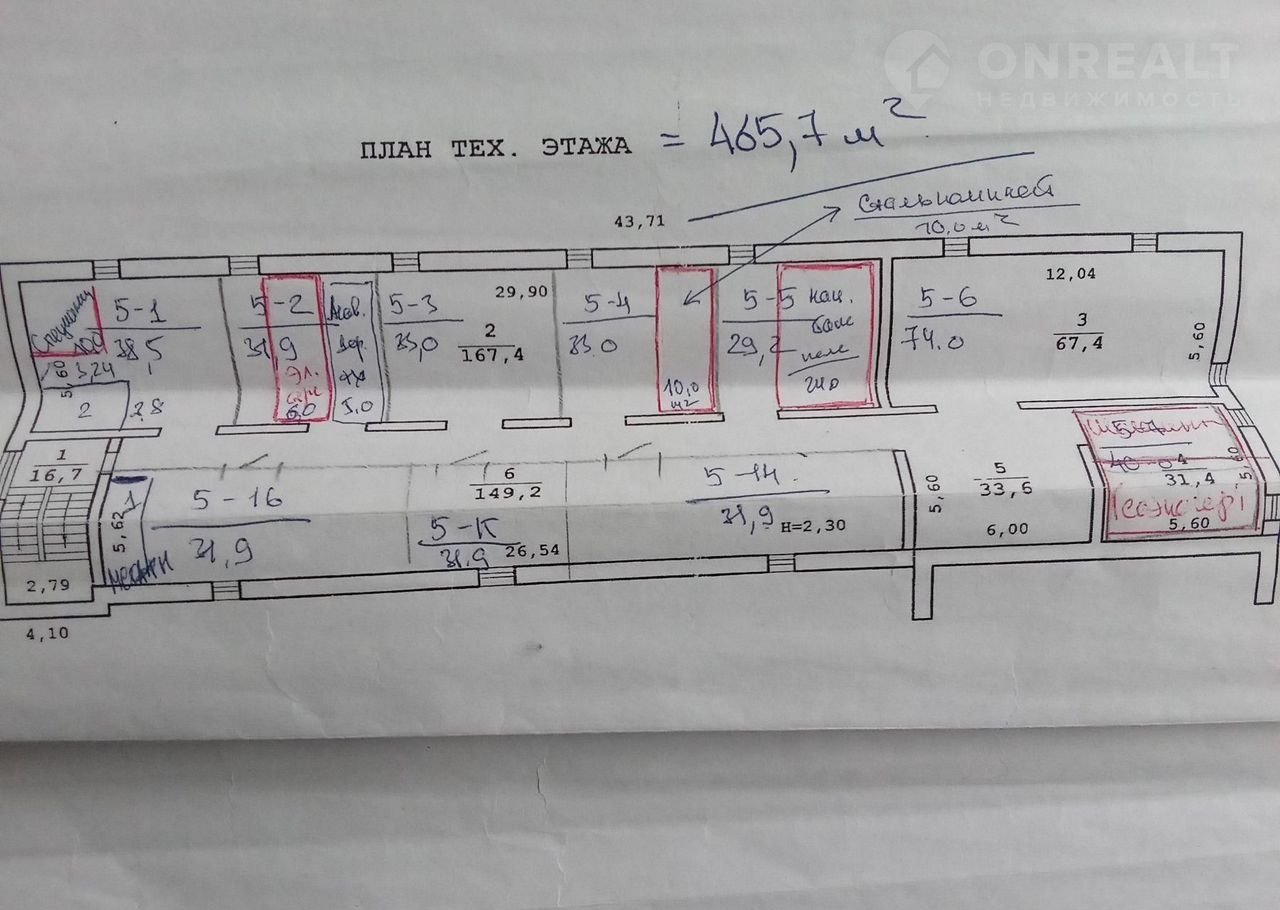 ONREALT
НЕДВИЖИМОСТЬ
ПЛАН ТЕХ. ЭТАЖА = 465,7 м²
43,71
10,0 м²
5-1
38,5
3,24
5,60
2
2,8
5-2
31,9
Эл.
6,0
5,0
5-3
33,0
29,90
2
167,4
5-4
33.0
10,0
м2
5-5
29,2
5-6
74.0
12,04
3
67,4
5,60
1
16,7
2,79
4,10
5,62
1
5-16
31,9
6
149,2
5-К
31.9
26,54
5-14
31,9
Н=2,30
5,60
5
33,6
6,00
5-7
4
31,4
5,60
5,60